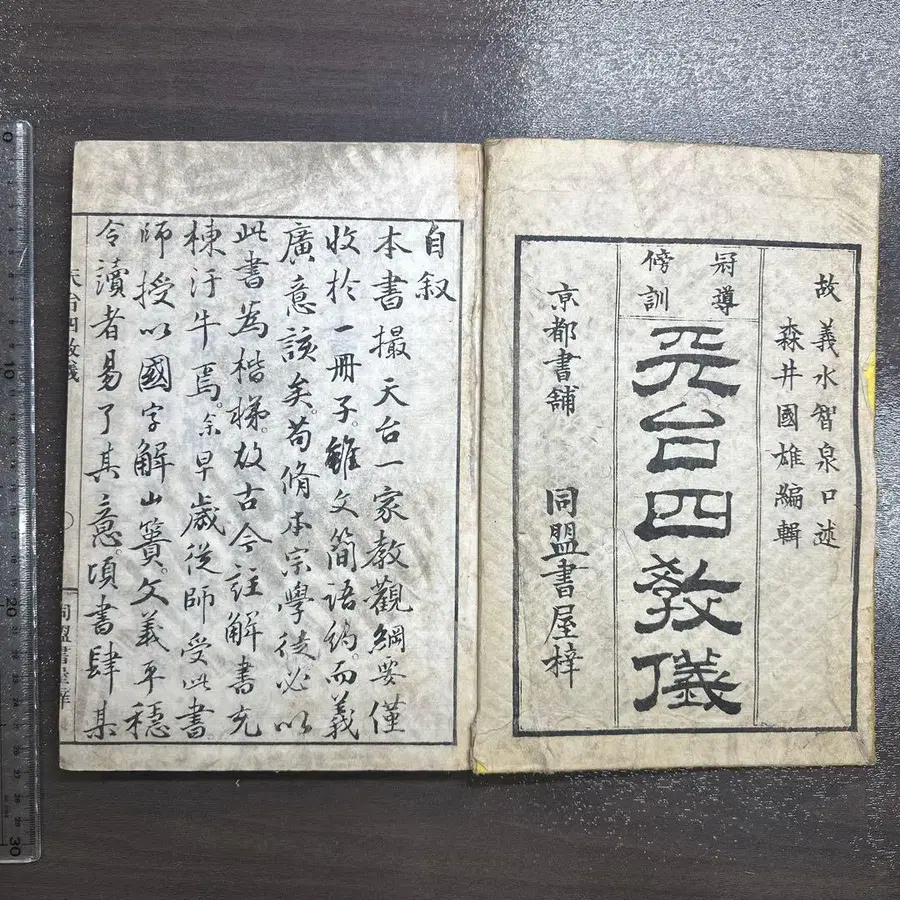 故義水智泉口述
森井國雄編輯
冠導
傍訓
天台四教儀
京都書舖 同盟書屋梓
自叙
本書撮天台一家教觀綱要僅
收於一冊子。雖文簡語約。而義
廣意該矣。苟脩本宗學徒必以
此書為楷梯。故古今註解書充
棟汙牛焉。余早歲從師受此書。
師授以國字解山簣。文義平穩
令讀者易了其意。頃書肆某
天台四教儀
同盟書屋梓
0
10
20
30